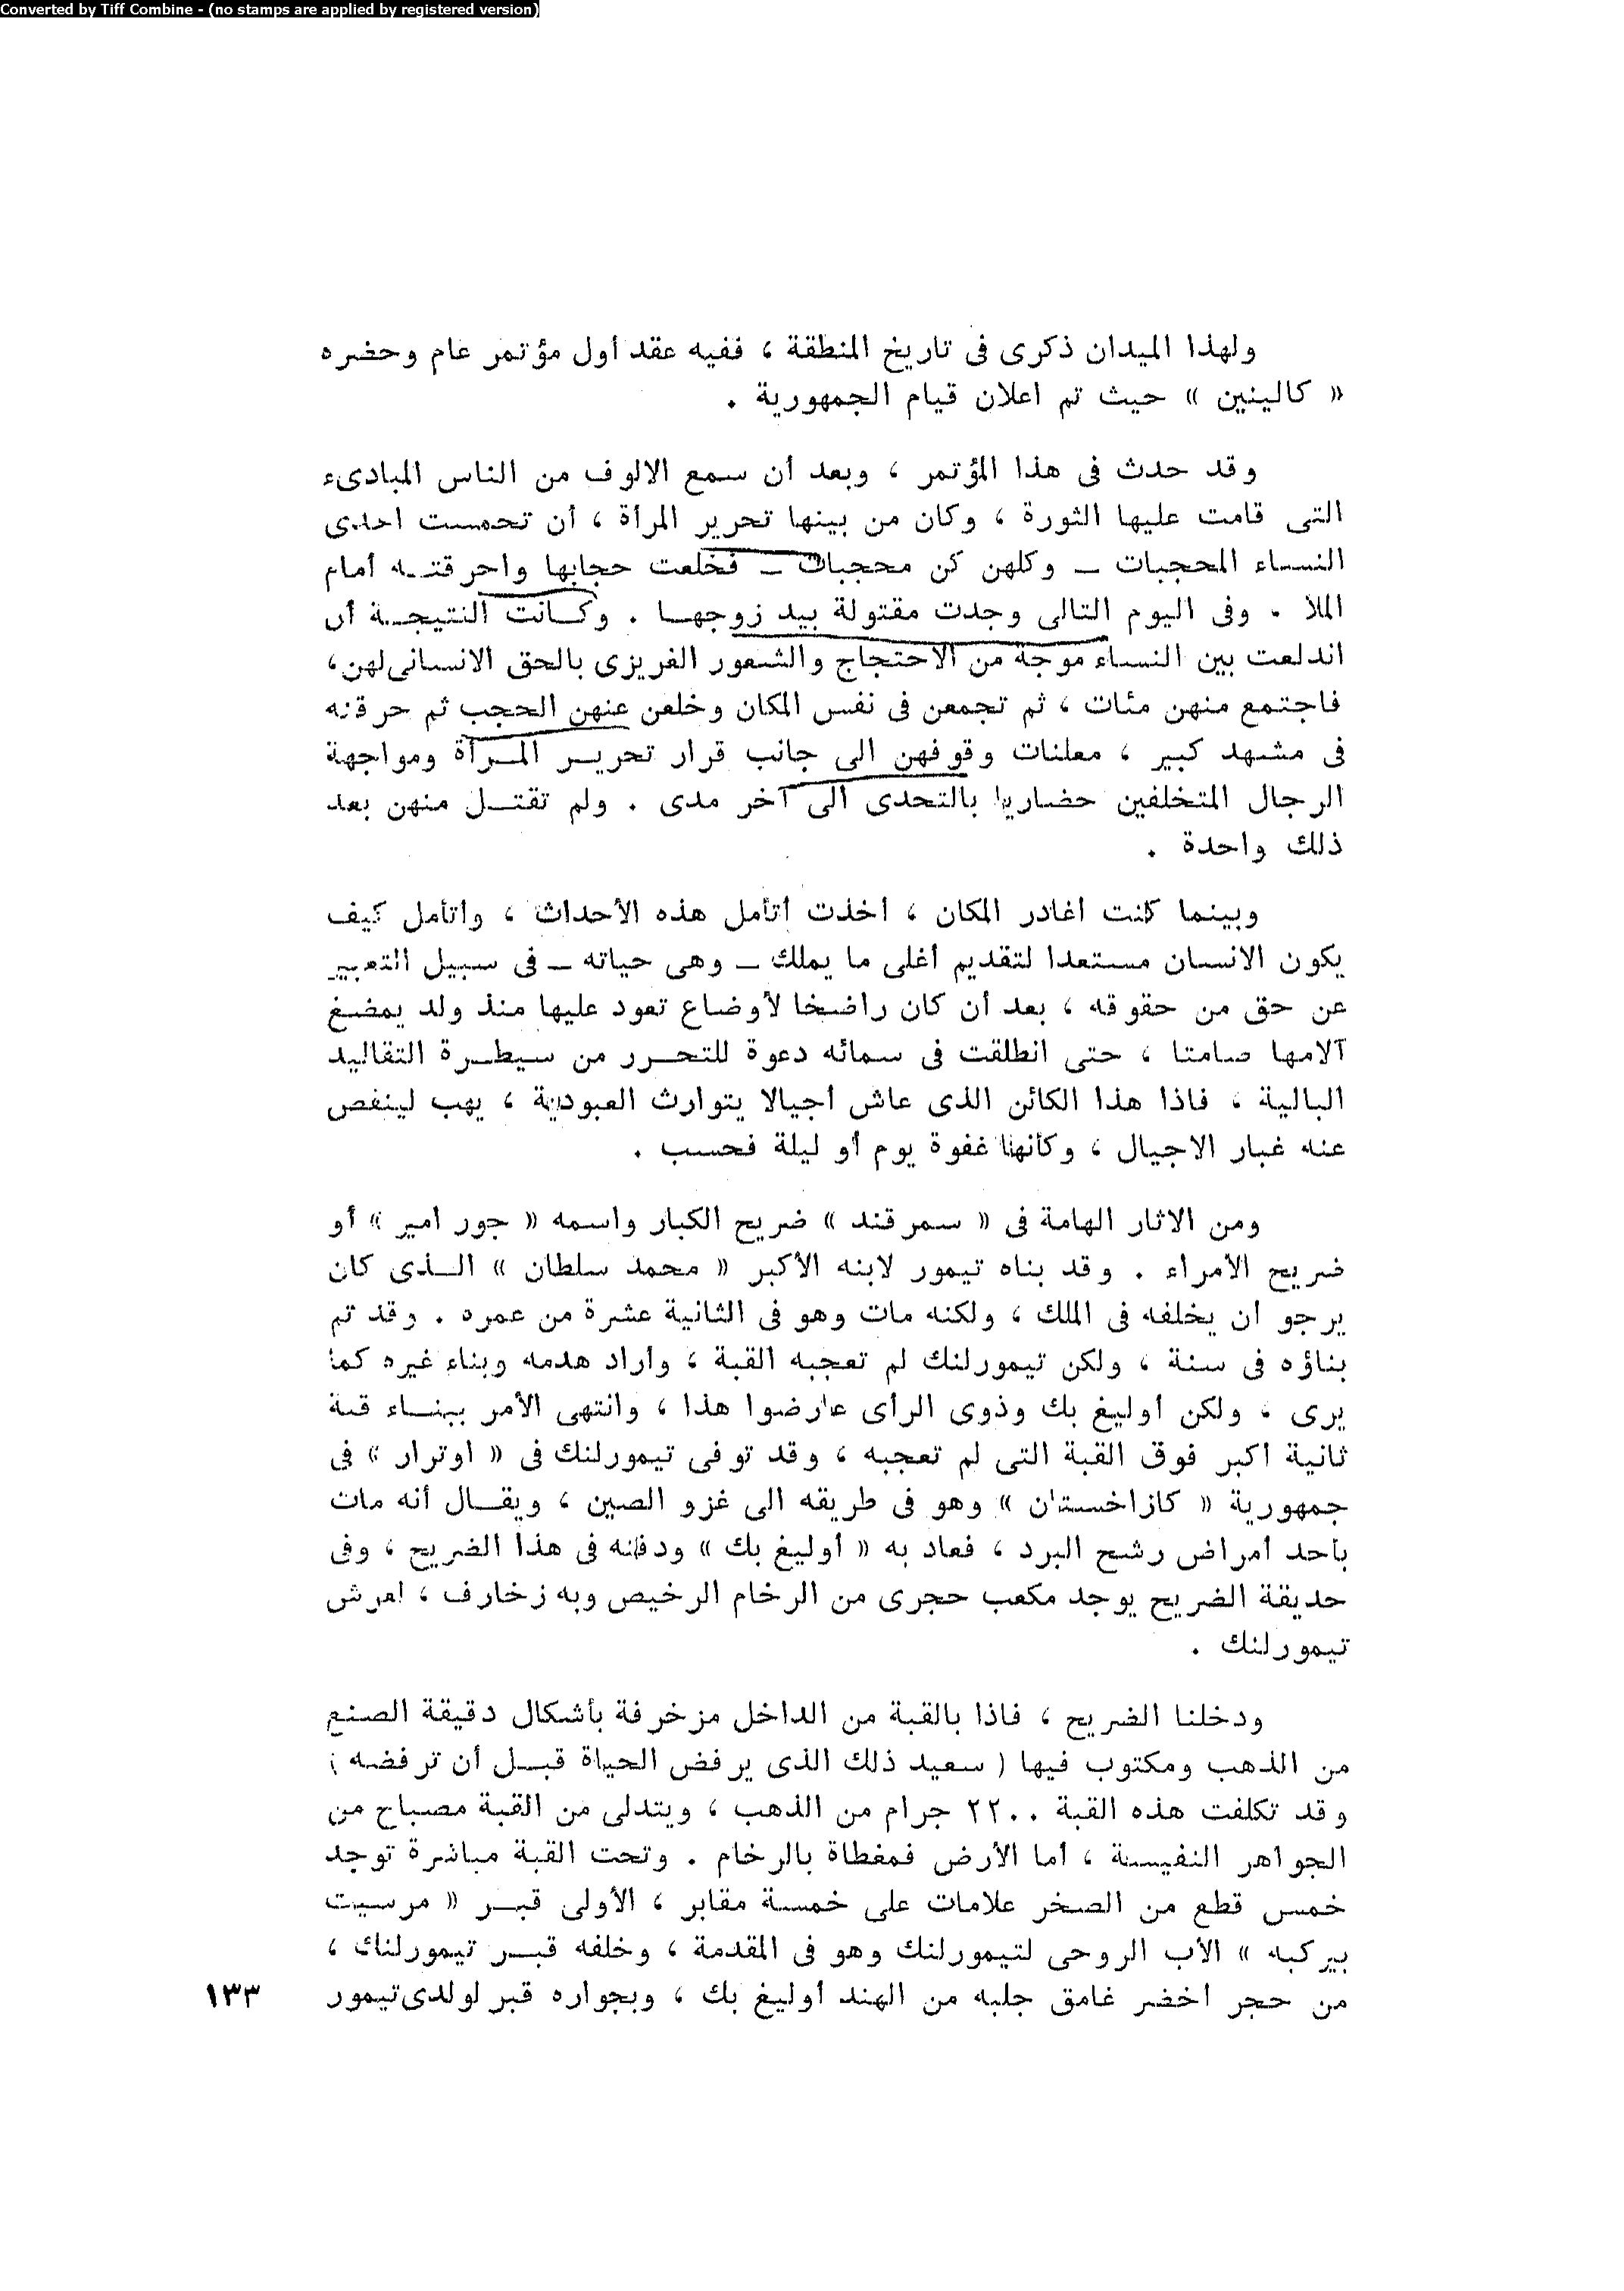 Converted by Tiff Combine - (no stamps are applied by registered version)
ولهذا الميدان ذكرى فى تاريخ المنطقة ، ففيه عقد أول مؤتمر عام وحضره
« كالينين » حيث تم اعلان قيام الجمهورية .
وقد حدث فى هذا المؤتمر ، وبعد أن سمع الالوف من الناس المبادىء
التى قامت عليها الثورة ، وكان من بينها تحرير المرأة ، أن تحمست احدى
النساء المحجبات – وكلهن كن محجبات – فخلعت حجابها واحرقته أمام
الملا . وفى اليوم التالى وجدت مقتولة بيد زوجها . وكانت النتيجة أن
اندلعت بين النساء موجة من الاحتجاج والشعور الغريزى بالحق الانسانى لهن،
فاجتمع منهن مئات ، ثم تجمعن فى نفس المكان وخلعن عنهن الحجب ثم حرقنه
فى مشهد كبير ، معلنات وقوفهن الى جانب قرار تحرير المرأة ومواجهة
الرجال المتخلفين حضاريا بالتحدى الى آخر مدى . ولم تقتل منهن بعد
ذلك واحدة .
وبينما كنت أغادر المكان ، أخذت أتأمل هذه الأحداث ، وأتأمل كيف
يكون الانسان مستعدا لتقديم أغلى ما يملك – وهى حياته – فى سبيل التعبير
عن حق من حقوقه ، بعد أن كان راضخا لأوضاع تعود عليها منذ ولد يمضغ
آلامها صامتا ، حتى انطلقت فى سمائه دعوة للتحرر من سيطرة التقاليد
البالية ، فاذا هذا الكائن الذى عاش أجيالا يتوارث العبودية ، يهب لينفض
عنه غبار الاجيال ، وكأنها غفوة يوم أو ليلة فحسب .
ومن الاثار الهامة فى « سمرقند » ضريح الكبار واسمه « جور أمير » أو
ضريح الأمراء . وقد بناه تيمور لابنه الأكبر « محمد سلطان » الذى كان
يرجو أن يخلفه فى الملك ، ولكنه مات وهو فى الثانية عشرة من عمره . وقد تم
بناؤه فى سنة ، ولكن تيمورلنك لم تعجبه القبة ، وأراد هدمه وبناء غيره كما
يرى ، ولكن أوليغ بك وذوى الرأى عارضوا هذا ، وانتهى الأمر ببناء قبة
ثانية أكبر فوق القبة التى لم تعجبه ، وقد توفى تيمورلنك فى « اوترار » فى
جمهورية « كازاخستان » وهو فى طريقه الى غزو الصين ، ويقال أنه مات
بأحد أمراض رشح البرد ، فعاد به « أوليغ بك » ودفنه فى هذا الضريح ، وفى
حديقة الضريح يوجد مكعب حجرى من الرخام الرخيص وبه زخارف ، لعرش
تيمورلنك .
ودخلنا الضريح ، فاذا بالقبة من الداخل مزخرفة بأشكال دقيقة الصنع
من الذهب ومكتوب فيها ( سعيد ذلك الذى يرفض الحياة قبل أن ترفضه )
وقد تكلفت هذه القبة ٢٢٠٠ جرام من الذهب ، ويتدلى من القبة مصباح من
الجواهر النفيسة ، أما الأرض فمغطاة بالرخام . وتحت القبة مباشرة توجد
خمس قطع من الصخر علامات على خمسة مقابر ، الأولى قبر « مرسيت
بيركبه » الأب الروحى لتيمورلنك وهو فى المقدمة ، وخلفه قبر تيمورلنك ،
من حجر أخضر غامق جلبه من الهند أوليغ بك ، وبجواره قبر لولدى تيمور
١٣٣